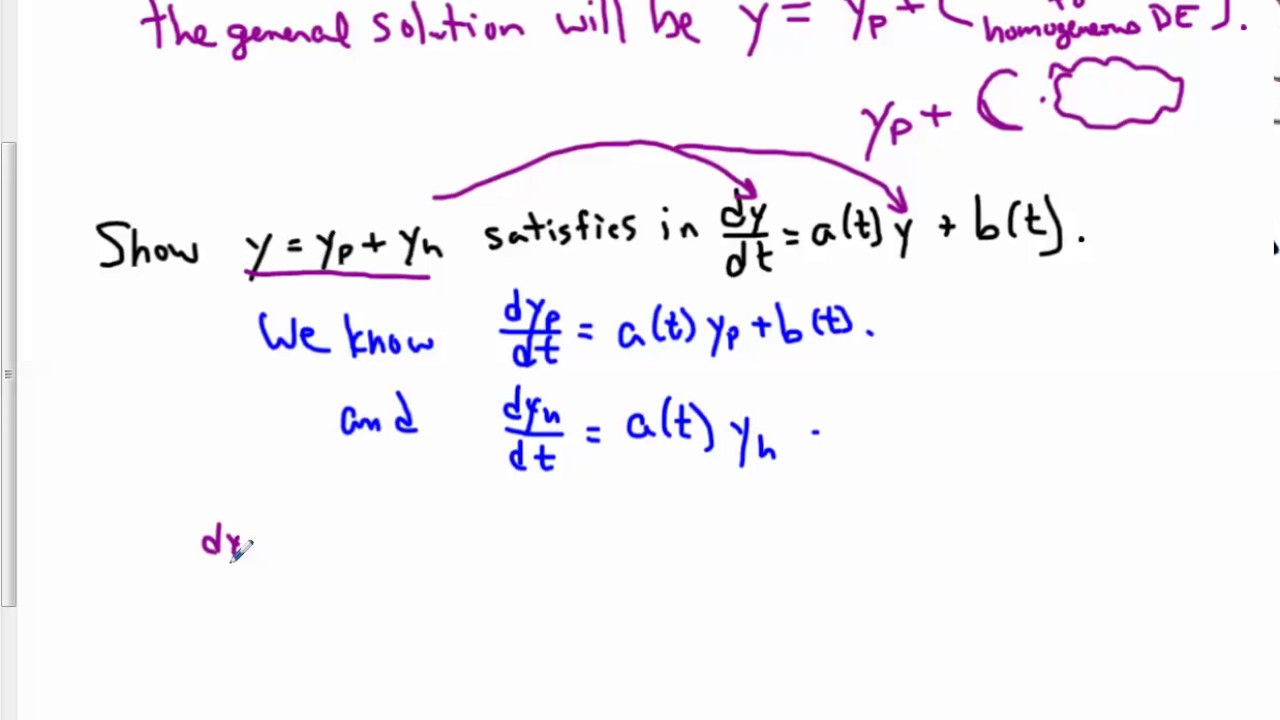 the general solution will be y = yp + ( homogeneous DE ).
yp + C ·
Show y = yp + yh satisfies in dy/dt = a(t) y + b(t).
We know dyp/dt = a(t) yp + b(t).
and dyh/dt = a(t) yh .
dy